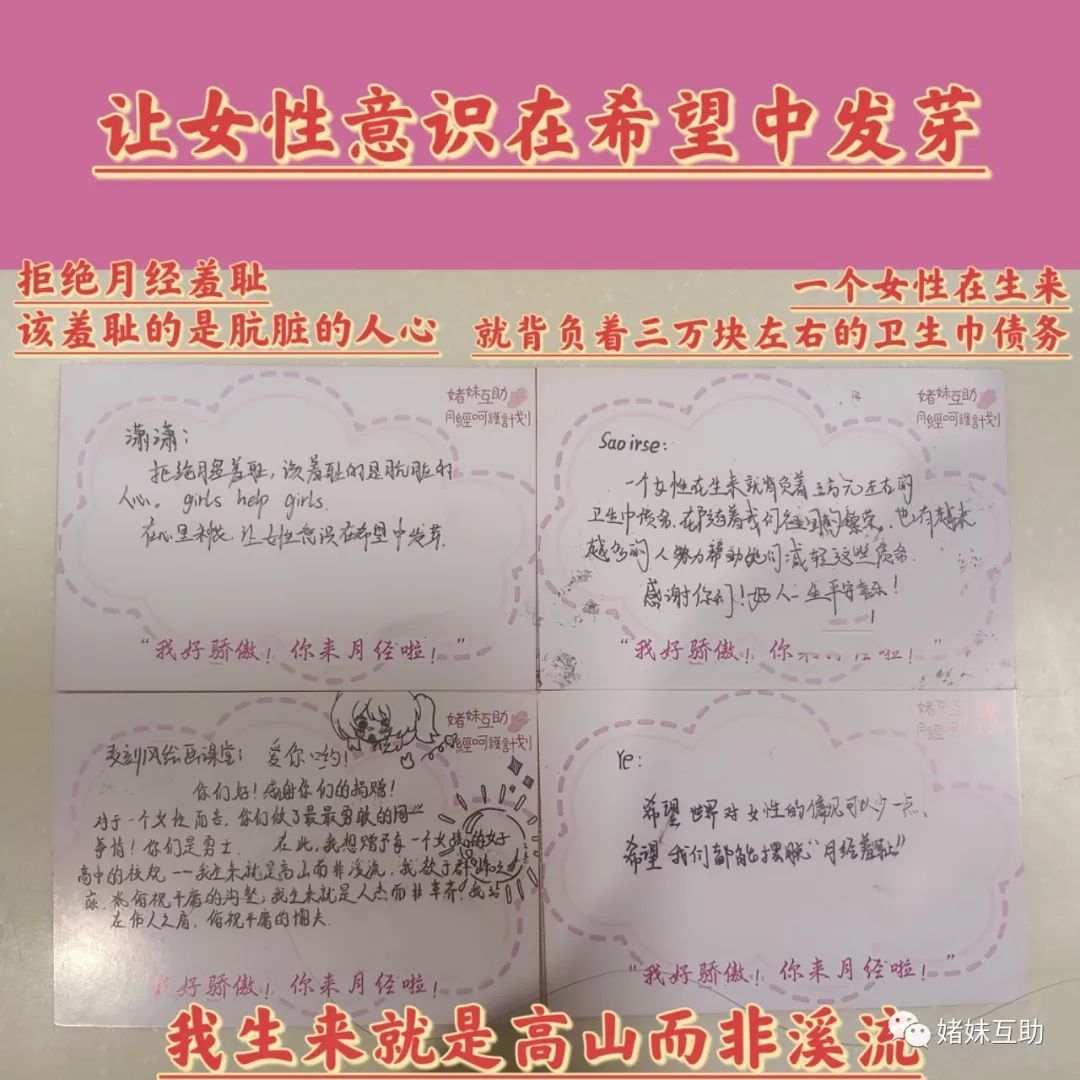 让女性意识在希望中发芽
拒绝月经羞耻
该羞耻的是肮脏的人心
一个女性在生来
就背负着三万块左右的卫生巾债务
媎妹互助
月經呵護計划
潇潇：
拒绝月经羞耻，该羞耻的是肮脏的
人心。girls help girls.
在心里种花，让女性意识在希望中发芽.
“我好骄傲！你来月经啦！”
媎妹互助
月經呵護計划
Saoirse:
一个女性在生来就背负着三万元左右的
卫生巾债务.在着我们祖国的繁荣，也有越来
越多的人努力帮助她们减轻这些债务.
感谢你们！好人一生平安喜乐！
“我好骄傲！你来月经啦！”
媎妹互助
月經呵護計划
风绘画课堂：爱你哟！
你们好！感谢你们的捐赠！
对于一个女性而言，你们做了最最勇敢的
事情！你们是勇士. 在此，我想赠予一个女子
高中的校规——我生来就是高山而非溪流，我欲于群峰之
巅，俯视平庸的沟壑；我生来就是人杰而非草芥，我站
在伟人之肩，俯视平庸的懦夫.
我好骄傲！你来月经啦！”
媎妹互助
月經呵護計划
Ye:
希望世界对女性的偏见可以少一点、
希望我们都能摆脱“月经羞耻”
“我好骄傲！你来月经啦！”
我生来就是高山而非溪流
媎妹互助